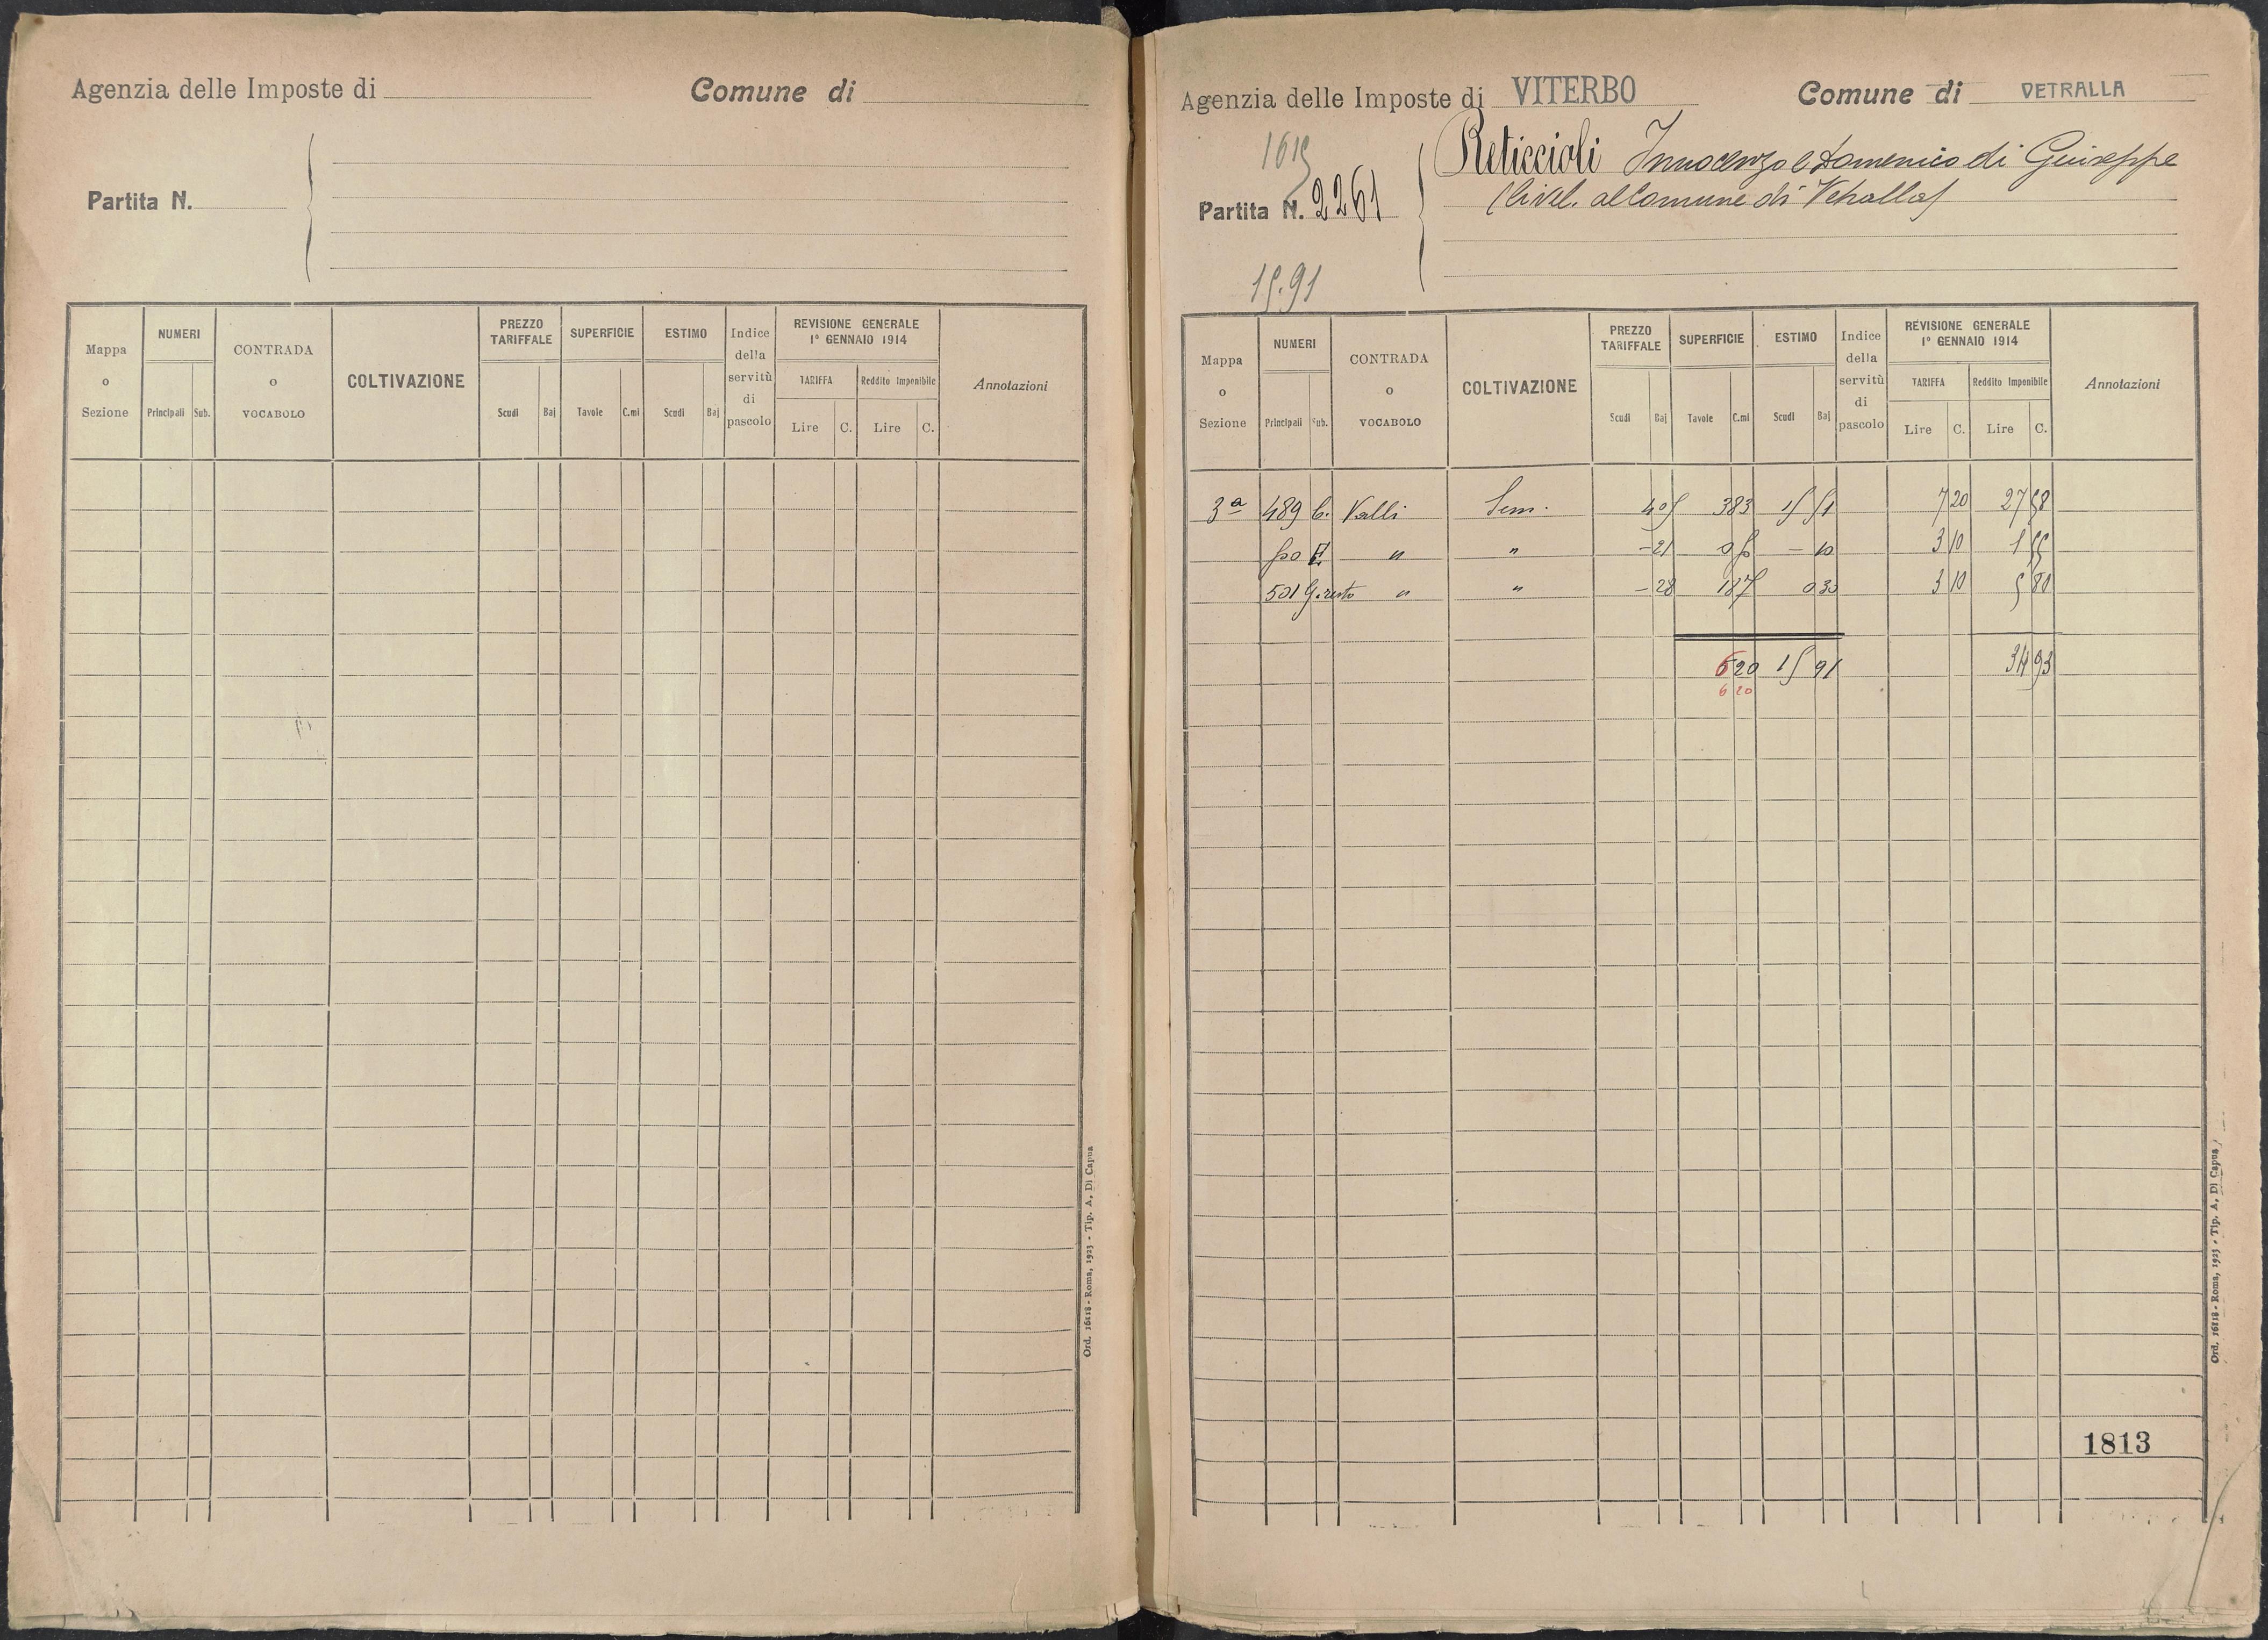 Agenzia delle Imposte di
Comune di
Partita N.
Mappa o Sezione
NUMERI
Principali Sub.
CONTRADA o VOCABOLO
COLTIVAZIONE
PREZZO TARIFFALE
Scudi Baj
SUPERFICIE
Tavole C.mi
ESTIMO
Scudi Baj
Indice della servitù di pascolo
REVISIONE GENERALE 1° GENNAIO 1914
TARIFFA Reddito Imponibile
Lire C. Lire C.
Annotazioni
Ord. 16118 - Roma, 1923 - Tip. A. Di Capua
Agenzia delle Imposte di VITERBO
Comune di VETRALLA
1615
Partita N. 2261
15.91
Reticcioli Innocenzo e Domenico di Giuseppe
(livell. al Comune di Vetralla)
Mappa o Sezione
NUMERI
Principali Sub.
CONTRADA o VOCABOLO
COLTIVAZIONE
PREZZO TARIFFALE
Scudi Baj
SUPERFICIE
Tavole C.mi
ESTIMO
Scudi Baj
Indice della servitù di pascolo
REVISIONE GENERALE 1° GENNAIO 1914
TARIFFA Reddito Imponibile
Lire C. Lire C.
Annotazioni
3a 489 Valli Sem. 405 383 15 51 7 20 27 58
" " - 21 - 10 3 10 1 55
501 resto " " - 28 187 0 30 3 10 5 80
6 20 15 91 34 93
6 20
1813
Ord. 16118 - Roma, 1923 - Tip. A. Di Capua